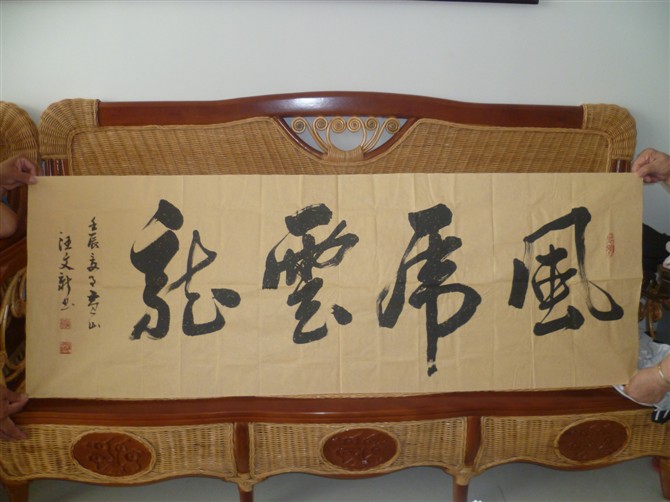 風虎雲龍
壬辰夏月黄山
汪文新书